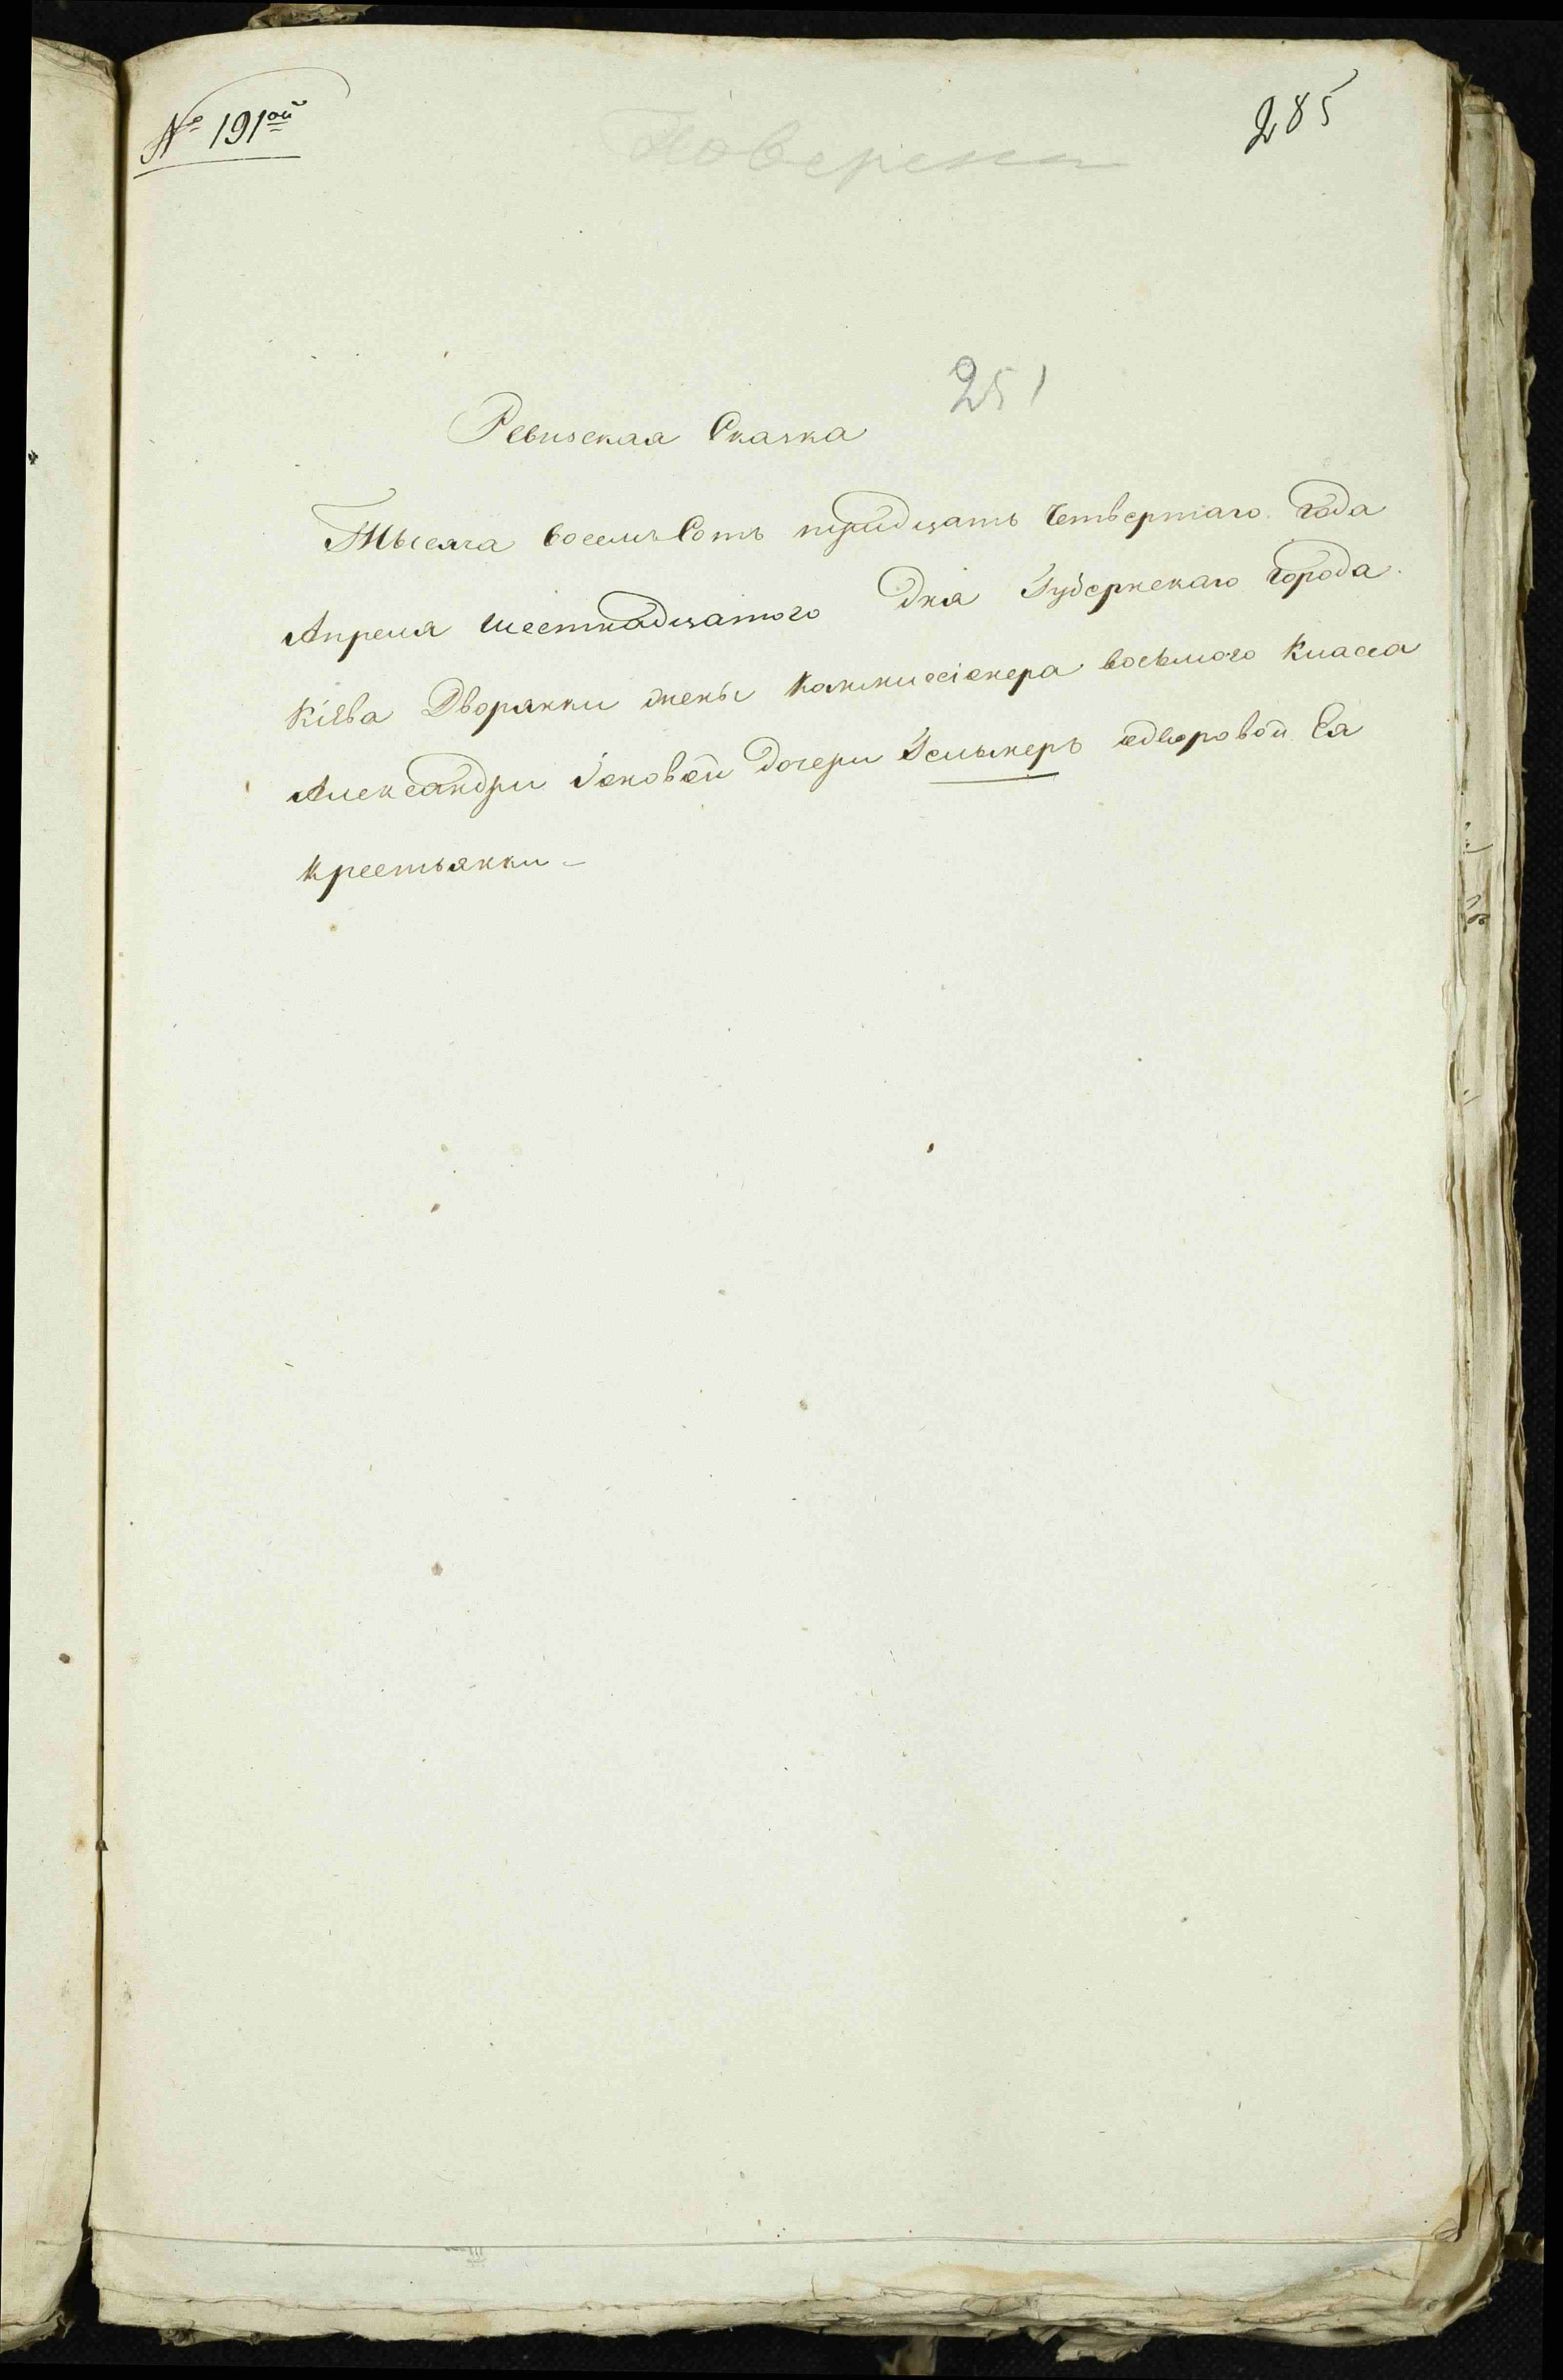 № 191ой
285
Поверена
251
Ревизская Сказка
Тысяча восемъ Сотъ тридцать Четвертаго года
Апреля шестнадцатого Дня Губернскаго города
Кіева Дворянки жены коммиссіонера восьмого Класса
Александри Яковой дочери Гельнеръ одворовой Ея
крестьянки